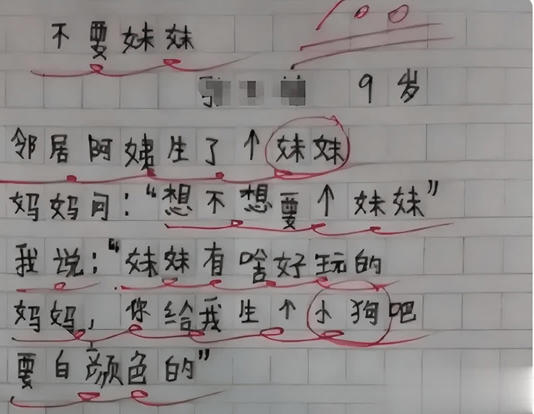 不要妹妹
100
9岁
邻居阿姨生了个妹妹
妈妈问：“想不想要个妹妹”
我说：“妹妹有啥好玩的
妈妈，你给我生个小狗吧
要白颜色的”